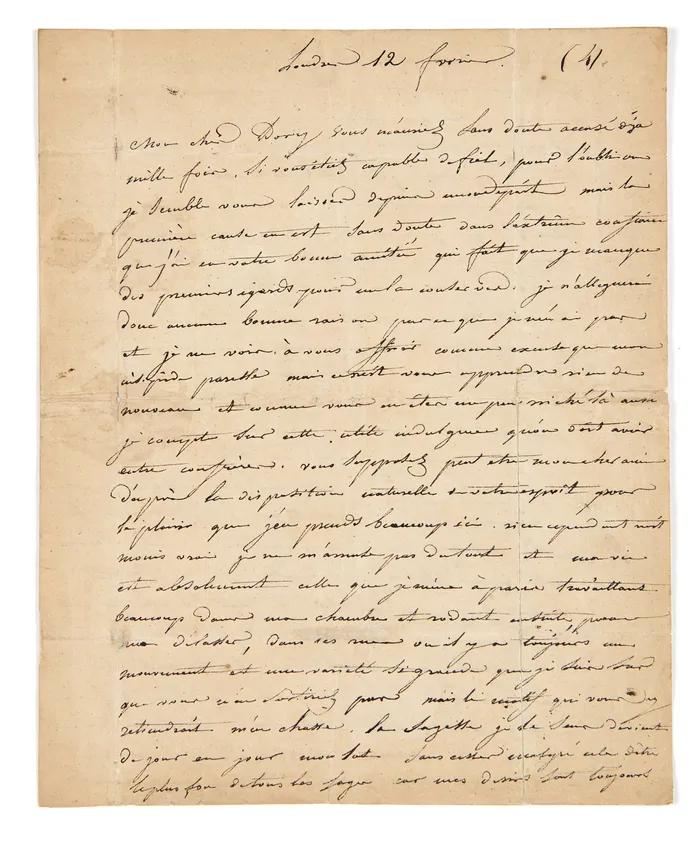 Londres 12 fevrier. (4)
Mon cher Dorcy vous m'auriez sans doute accusé deja
mille fois, si vous étiez capable de fiel, pour l'oubli ou
je semble vous laisser depuis mon départ mais la
première cause en est sans doute dans l'extrême confiance
que j'ai en votre bonne amitié qui fait que je manque
des premiers égards pour me la conserver. je n'alleguerai
donc aucune bonne raison parce que je n'en ai pas
et je ne vois à vous offrir comme excuse que mon
insipide paresse mais ce n'est vous apprendre rien de
nouveau et comme vous en êtes un peu niché là aussi
je compte sur cette utile indulgence qu'on doit avoir
entre confrères. vous supposez peut etre mon cher ami
d'après la disposition naturelle de votre esprit pour
le plaisir que j'en prends beaucoup ici. rien cependant n'est
moins vrai je ne m'amuse pas du tout et ma vie
est absolument celle que je mène à paris travaillant
beaucoup dans ma chambre et rodant ensuite pour
me délasser, dans les rues ou il y a toujours un
mouvement et une variété si grande que je suis sur
que vous n'en sortiriez pas mais le motif qui vous y
retiendrait m'en chasse. la sagesse je le sens devient
de jour en jour mon lot sans cesser malgré cela d'être
le plus fou de tous les sages car mes desirs sont toujours